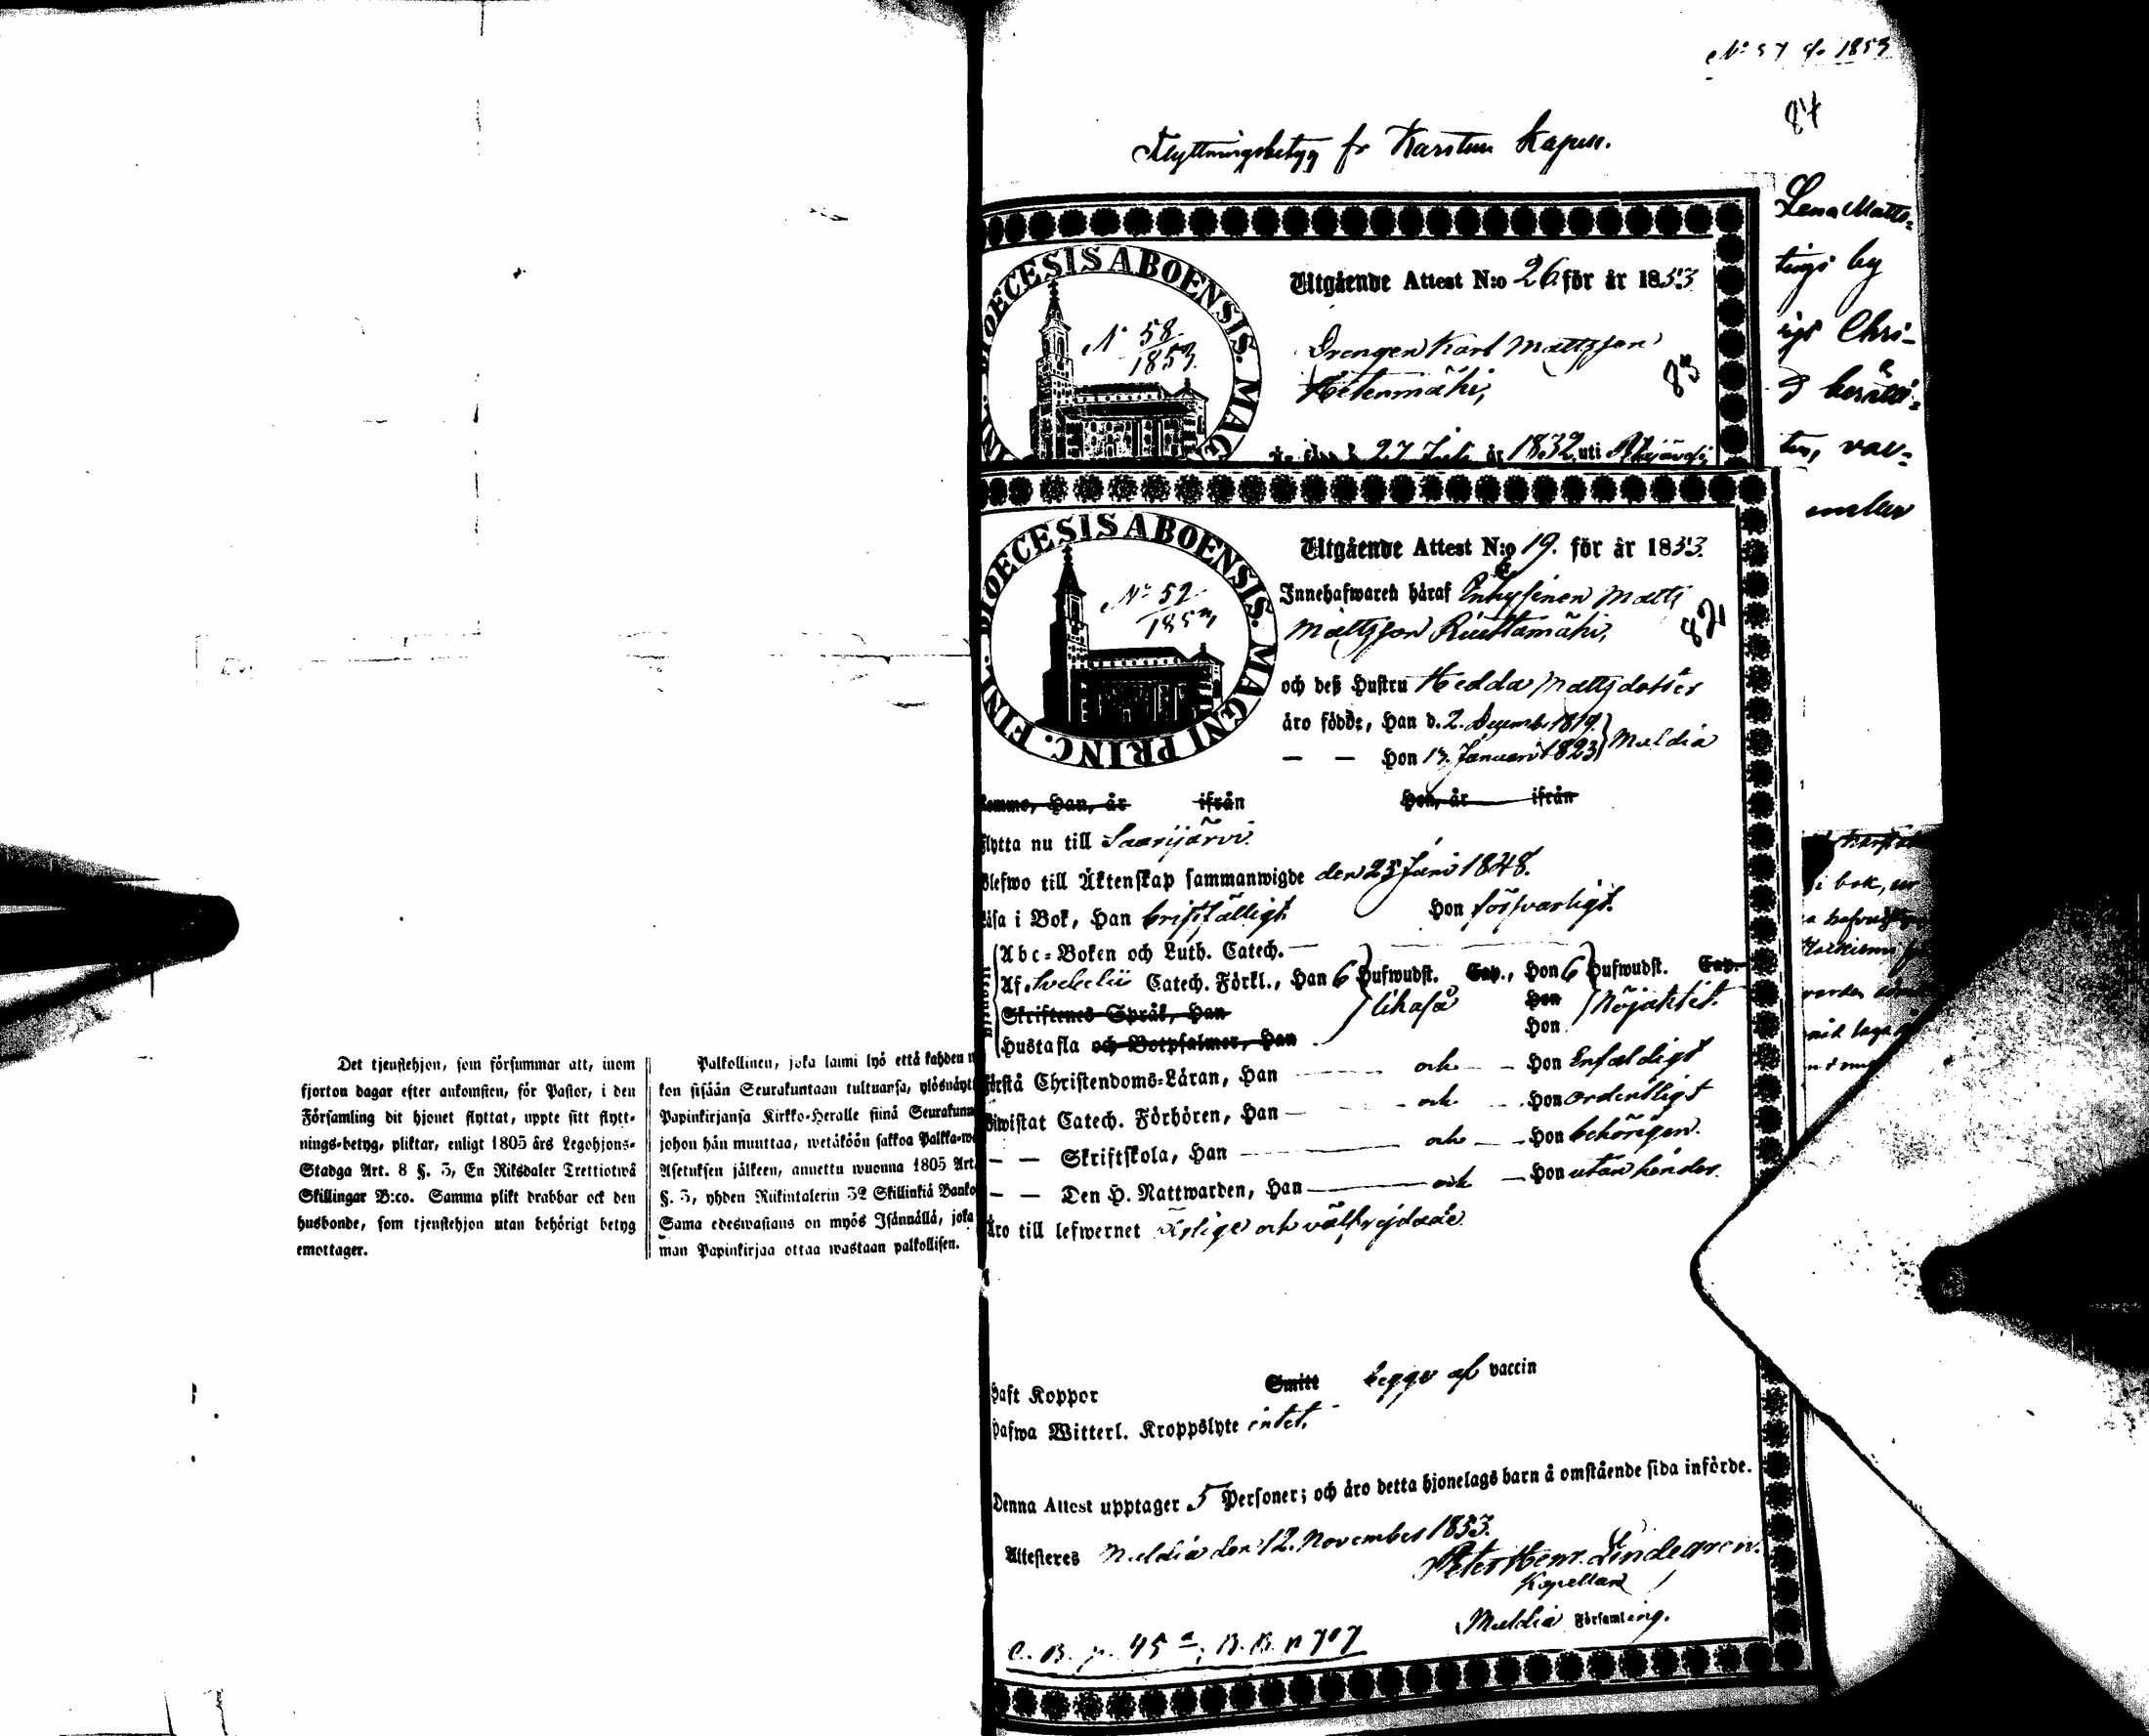 Det tjenstehjon, som försummar att, inom
fjorton dagar efter ankomsten, för Pastor, i den
Församling dit hjonet flyttat, uppte sitt flytt-
nings-betyg, pliktar, enligt 1805 års Legohjons-
Stadga Art. 8 §. 3, En Riksdaler Trettiotwå
Skillingar B:co. Samma plikt drabbar ock den
husbonde, som tjenstehjon utan behörigt betyg
emottager.
Palkollinen, joka laimi lyö että kahden
kon sisään Seurakuntaan tultuansa, ylösnäyt
Papinkirjansa Kirkko-Heralle siinä Seurakunn
johon hän muuttaa, wetäköön sakkoa Palkka-w
Asetuksen jälkeen, annettu wuonna 1805 Art.
§. 3, yhden Riikintalerin 32 Skillinkiä Banko
Sama edeswastaus on myös Isännällä, joka
man Papinkirjaa ottaa wastaan palkollisen.
1853
84
Flyttningsbetyg fr Karstun Kapell.
Lena Matts-
by
Chri-
DIOECESIS ABOENSIS. MAG
N 58
1853.
Utgående Attest N:o 26 för år 1853
Drengen Karl Mattsson
83
27 Juli år 1832 uti
DIOECESIS ABOENSIS. MAGNI PRINC. FINL.
No 52
1853
Utgående Attest N:o 19. för år 1853.
Innehafwaren häraf Inhysinen Matts
Mattsson Ruuttamäki,
82
och deß Hustru Hedda Mattsdotter
äro födde, Han d. 2. Decemb. 1819.
— — Hon 13. Januari 1823 Multia
komne, Han, år ifrån Hon, år ifrån
flytta nu till Saarijärvi.
Blefwo till Äktenskap sammanwigde den 25 Juni 1848.
Läsa i Bok, Han bristfälligt Hon försvarligt.
Abc-Boken och Luth. Catech. —
Af Svebelii Catech. Förkl., Han 6 Hufwudst. Cap., Hon 6 Hufwudst. Cap.
Skriftenes Språk, Han likaså Hon Nöjaktist.
Hustafla och Botpsalmer, Han Hon
förstå Christendoms-Läran, Han — och — Hon Enfaldigt
Biwistat Catech. Förhören, Han — och — Hon ordentligt
— — Skriftskola, Han — och — Hon behörigen.
— — Den H. Nattwarden, Han — och — Hon utan hinder.
Äro till lefwernet ärlige och välfrejdade.
Haft Koppor Smitt begge af vaccin
Hafwa Witterl. Kroppslyte intet.
Denna Attest upptager 5 Personer; och äro detta hjonelags barn å omstående sida införde.
Attesteres Multia den 12. November 1853.
Peter Henr. Lindegren.
Kapellan
Multia Församling.
C. B. p. 45